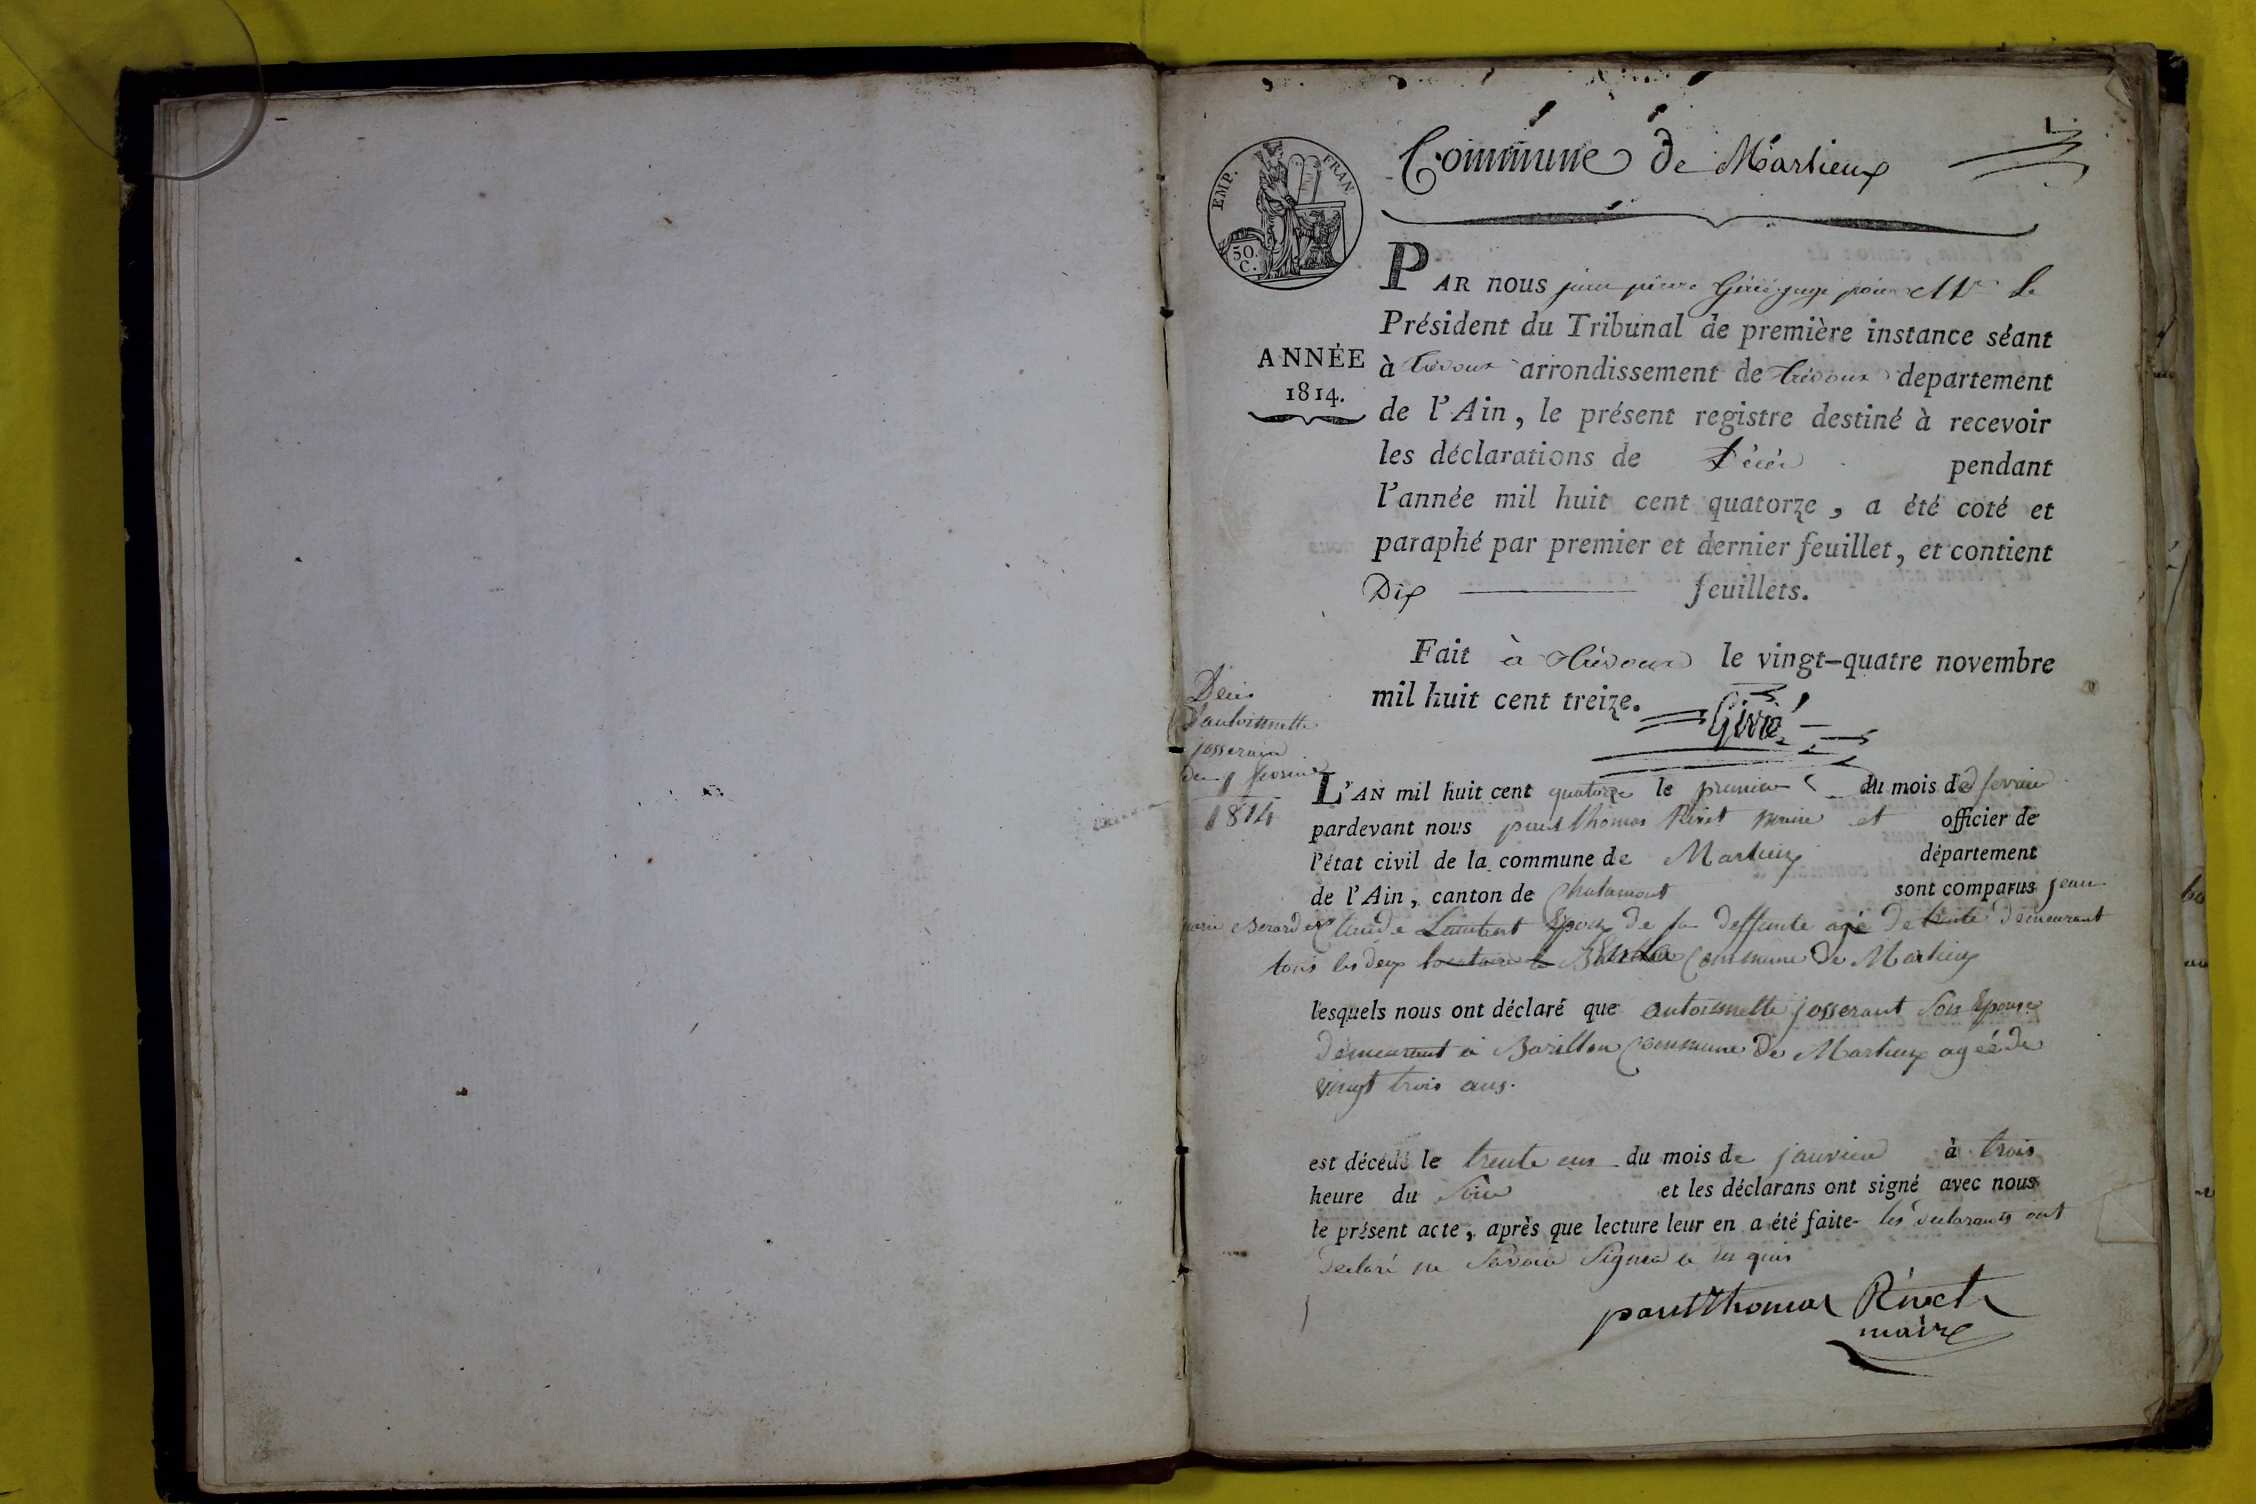 1
Commune de Marlieux
EMP. FRAN.
50. C.
PAR nous jean pierre Givié juge pour Mr le
Président du Tribunal de première instance séant
ANNÉE
1814.
à trévoux arrondissement de trévoux departement
de l'Ain, le présent registre destiné à recevoir
les déclarations de Décés pendant
l'année mil huit cent quatorze, a été coté et
paraphé par premier et dernier feuillet, et contient
Dix feuillets.
Fait à trévoux le vingt-quatre novembre
mil huit cent treize.
Givié
Décès
D'antoinnette
josseran
du 1 fevrier
1814
L'AN mil huit cent quatorze le premier du mois de fevrier
pardevant nous paul thomas Rivet maire et officier de
l'état civil de la commune de Marlieux département
de l'Ain, canton de Chalamont sont comparus jean
marie Berard et Claude Lambert Epoux de la deffunte agé de trente demeurant
tous les deux Commune de Marlieux
lesquels nous ont déclaré que antoinnette josserant son Epouse
demeurant à Barillon Commune de Marlieux agée de
vingt trois ans.
est décédé le trente un du mois de janvier à trois
heure du soir et les déclarans ont signé avec nous
le présent acte, après que lecture leur en a été faite les declarants ont
declaré ne savoir signer
paul thomas Rivet
maire